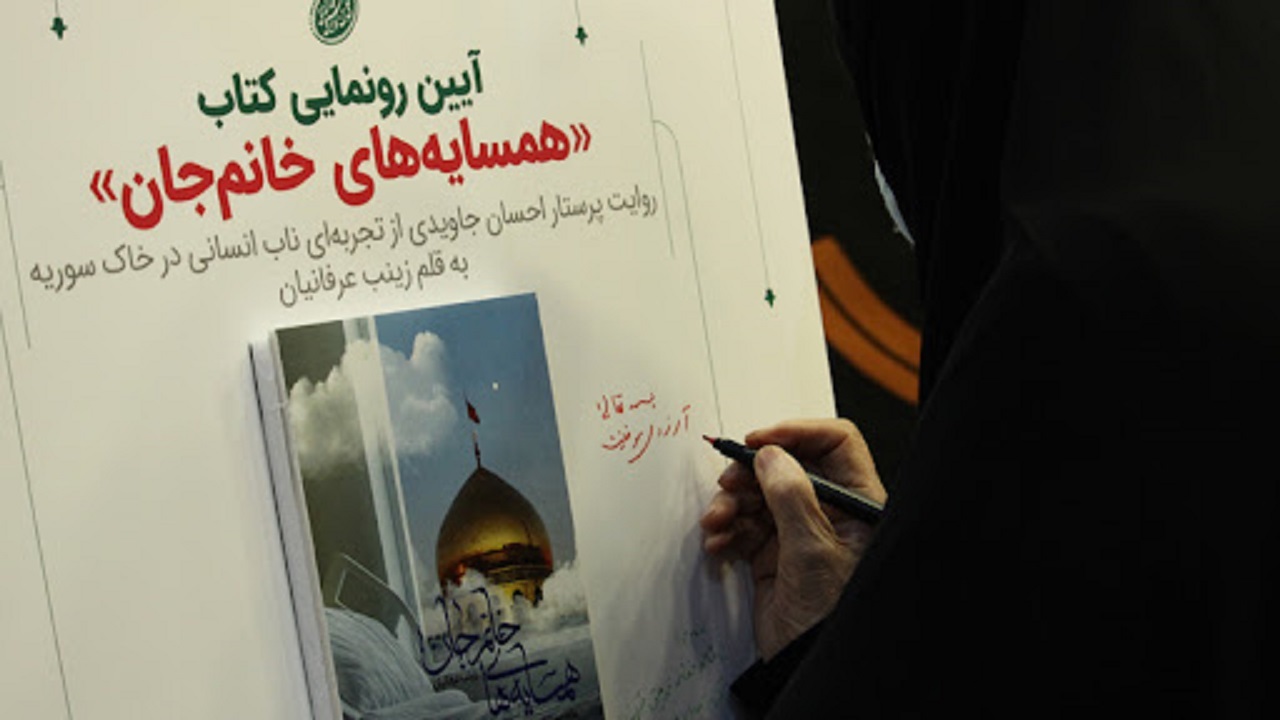 آیین رونمایی کتاب
«همسایه‌های خانم‌جان»
روایت پرستار احسان جاویدی از تجربه‌ای ناب انسانی در خاک سوریه
به قلم زینب عرفانیان
بسمه تعالی
آرزوی موفقیت
خانم جان
همسایه‌های